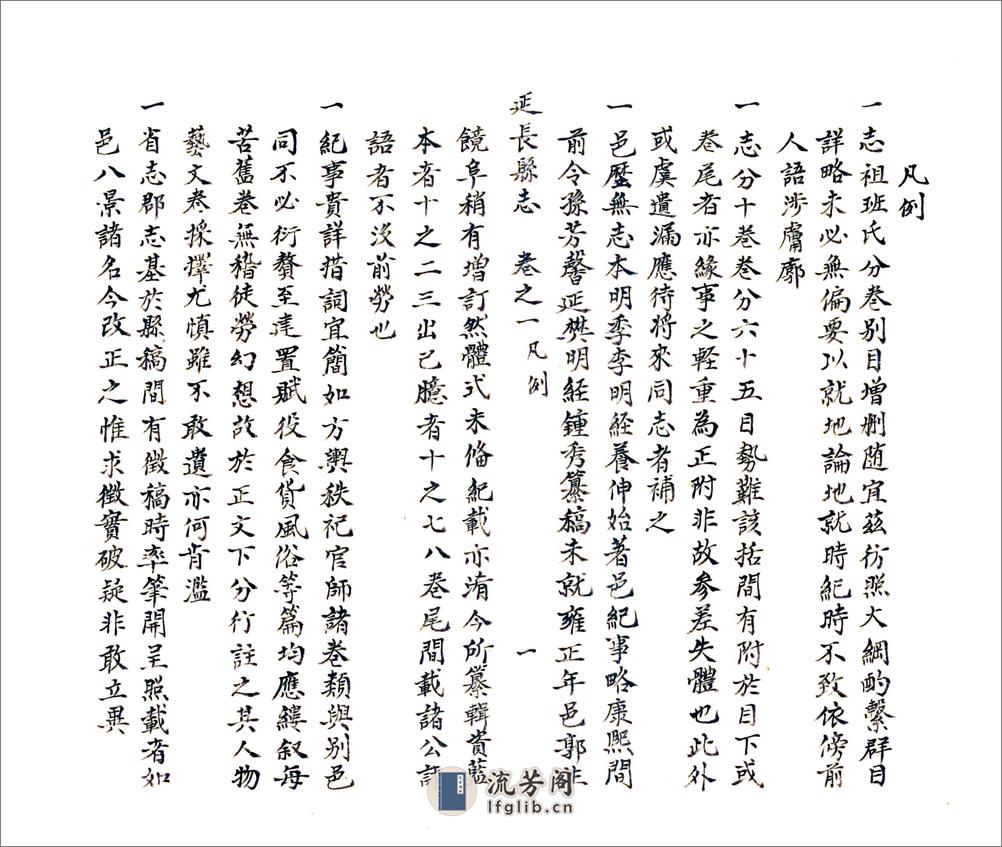 凡例
一志祖班氏分卷别目增刪随宜茲彷照大綱酌繫群目
詳略未必無偏要以就地論地就時紀時不致依傍前
人語涉膚廓
一志分十卷卷分六十五目勢難該括間有附於目下或
卷尾者亦緣事之軽重為正附非故參差失體也此外
或虞遺漏應待將來同志者補之
一邑歷無志本明季李明経養伸始著邑紀事略康熙間
前令孫芳馨延樊明経鍾秀纂稿未就雍正年邑郭
延長縣志 卷之一 凡例 一
饒阜稍有增訂然體式未俻紀載亦淆今所纂輯貲藍
本者十之二三出己臆者十之七八卷尾間載諸公
語者不沒前勞也
一紀事貴詳措詞宜簡如方輿秩祀官師諸卷類與别邑
同不必衍贅至建置賦役食貨風俗等篇均應縷叙每
苦舊卷無稽徒勞幻想故於正文下分行註之其人物
藝文卷採擇尤慎雖不敢遺亦何肯濫
一省志郡志基於縣稿間有徵稿時率筆開呈照載者如
邑八景諸名今改正之惟求徵實破疑非敢立異
流芳阁
lfglib.cn